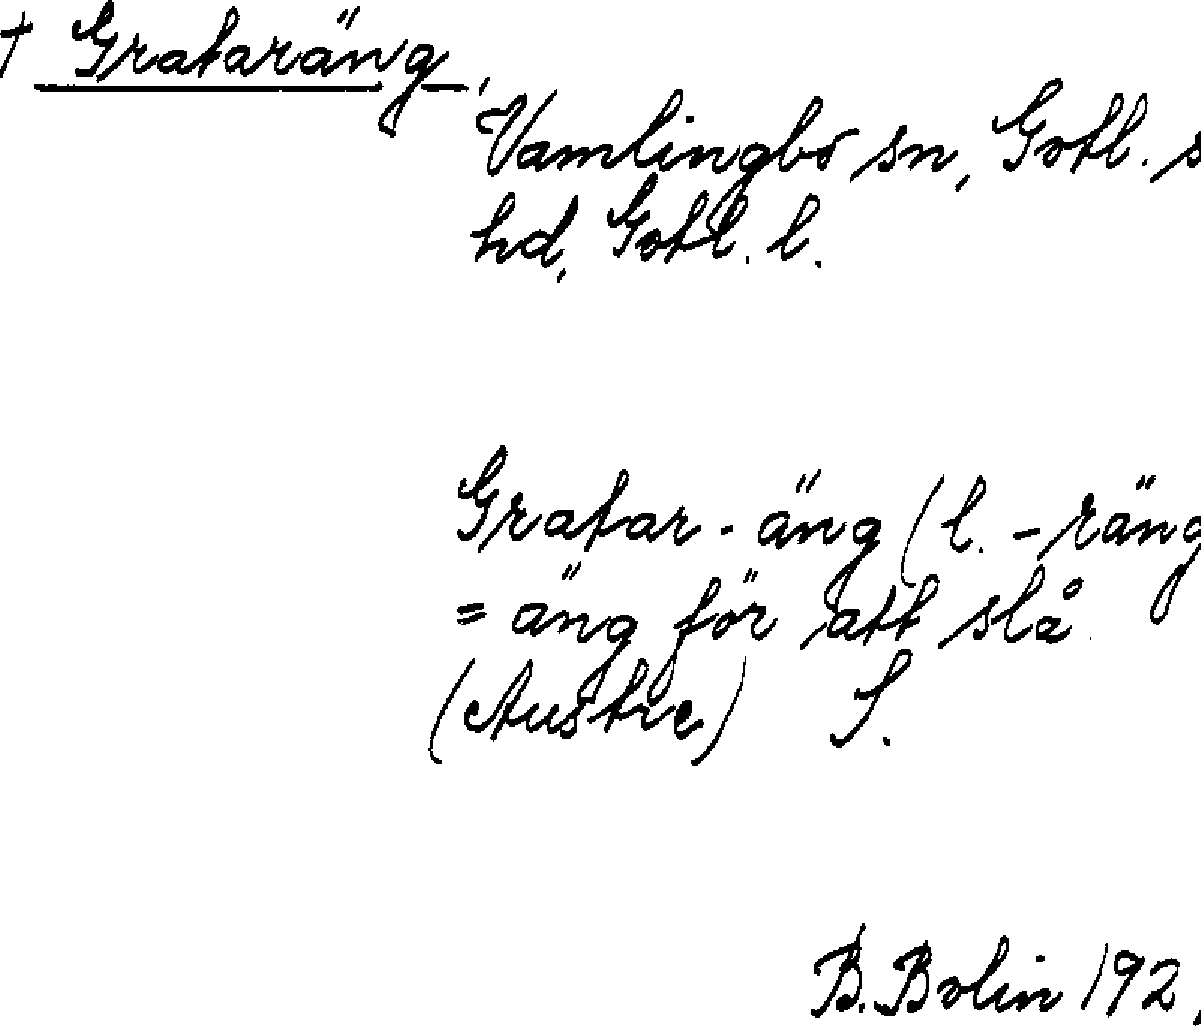 † Grafaräng,
Vamlingbo sn, Gotl. s
hd, Gotl. l.
Grafar-äng (l. -räng
= äng för att slå
(Austre) S.
B. Bolin 192